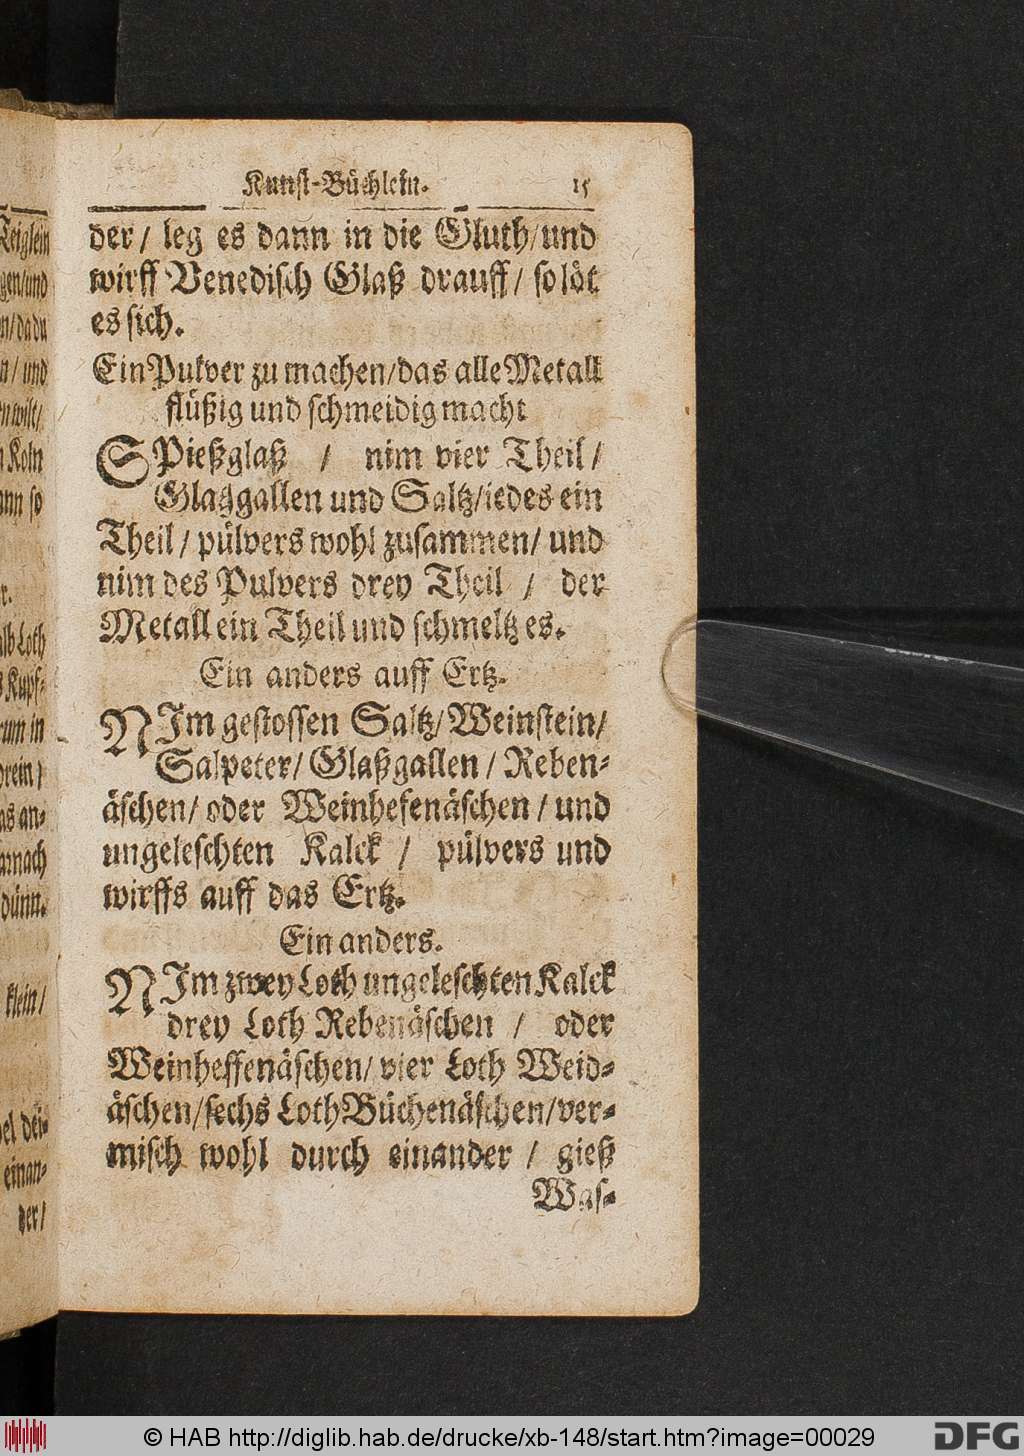 Kunst-Büchlein. 15
der / leg es dann in die Gluth/und
wirff Venedisch Glaß drauff / so löt
es sich.
Ein Pulver zu machen/das alle Metall
flüßig und schmeidig macht
SPießglaß / nim vier Theil /
Glaßgallen und Saltz/iedes ein
Theil / pülvers wohl zusammen/ und
nim des Pulvers drey Theil / der
Metall ein Theil und schmeltz es.
Ein anders auff Ertz.
NIm gestossen Saltz/Weinstein/
Salpeter/ Glaßgallen / Reben-
äschen/ oder Weinhefenäschen / und
ungeleschten Kalck / pülvers und
wirffs auff das Ertz.
Ein anders.
NIm zwey Loth ungeleschten Kalck
drey Loth Rebenäschen / oder
Weinheffenäschen/ vier Loth Weid-
äschen/sechs Loth Büchenäschen/ver-
misch wohl durch einander / gieß
Was-
Teiglein
gen/und
n/da du
n / und
en wilt/
n Koln
ann so
r.
alb Loth
s Kupf-
rum in
drein /
as an-
arnach
dünn.
klein /
el dei-
einan-
der /
© HAB http://diglib.hab.de/drucke/xb-148/start.htm?image=00029
DFG